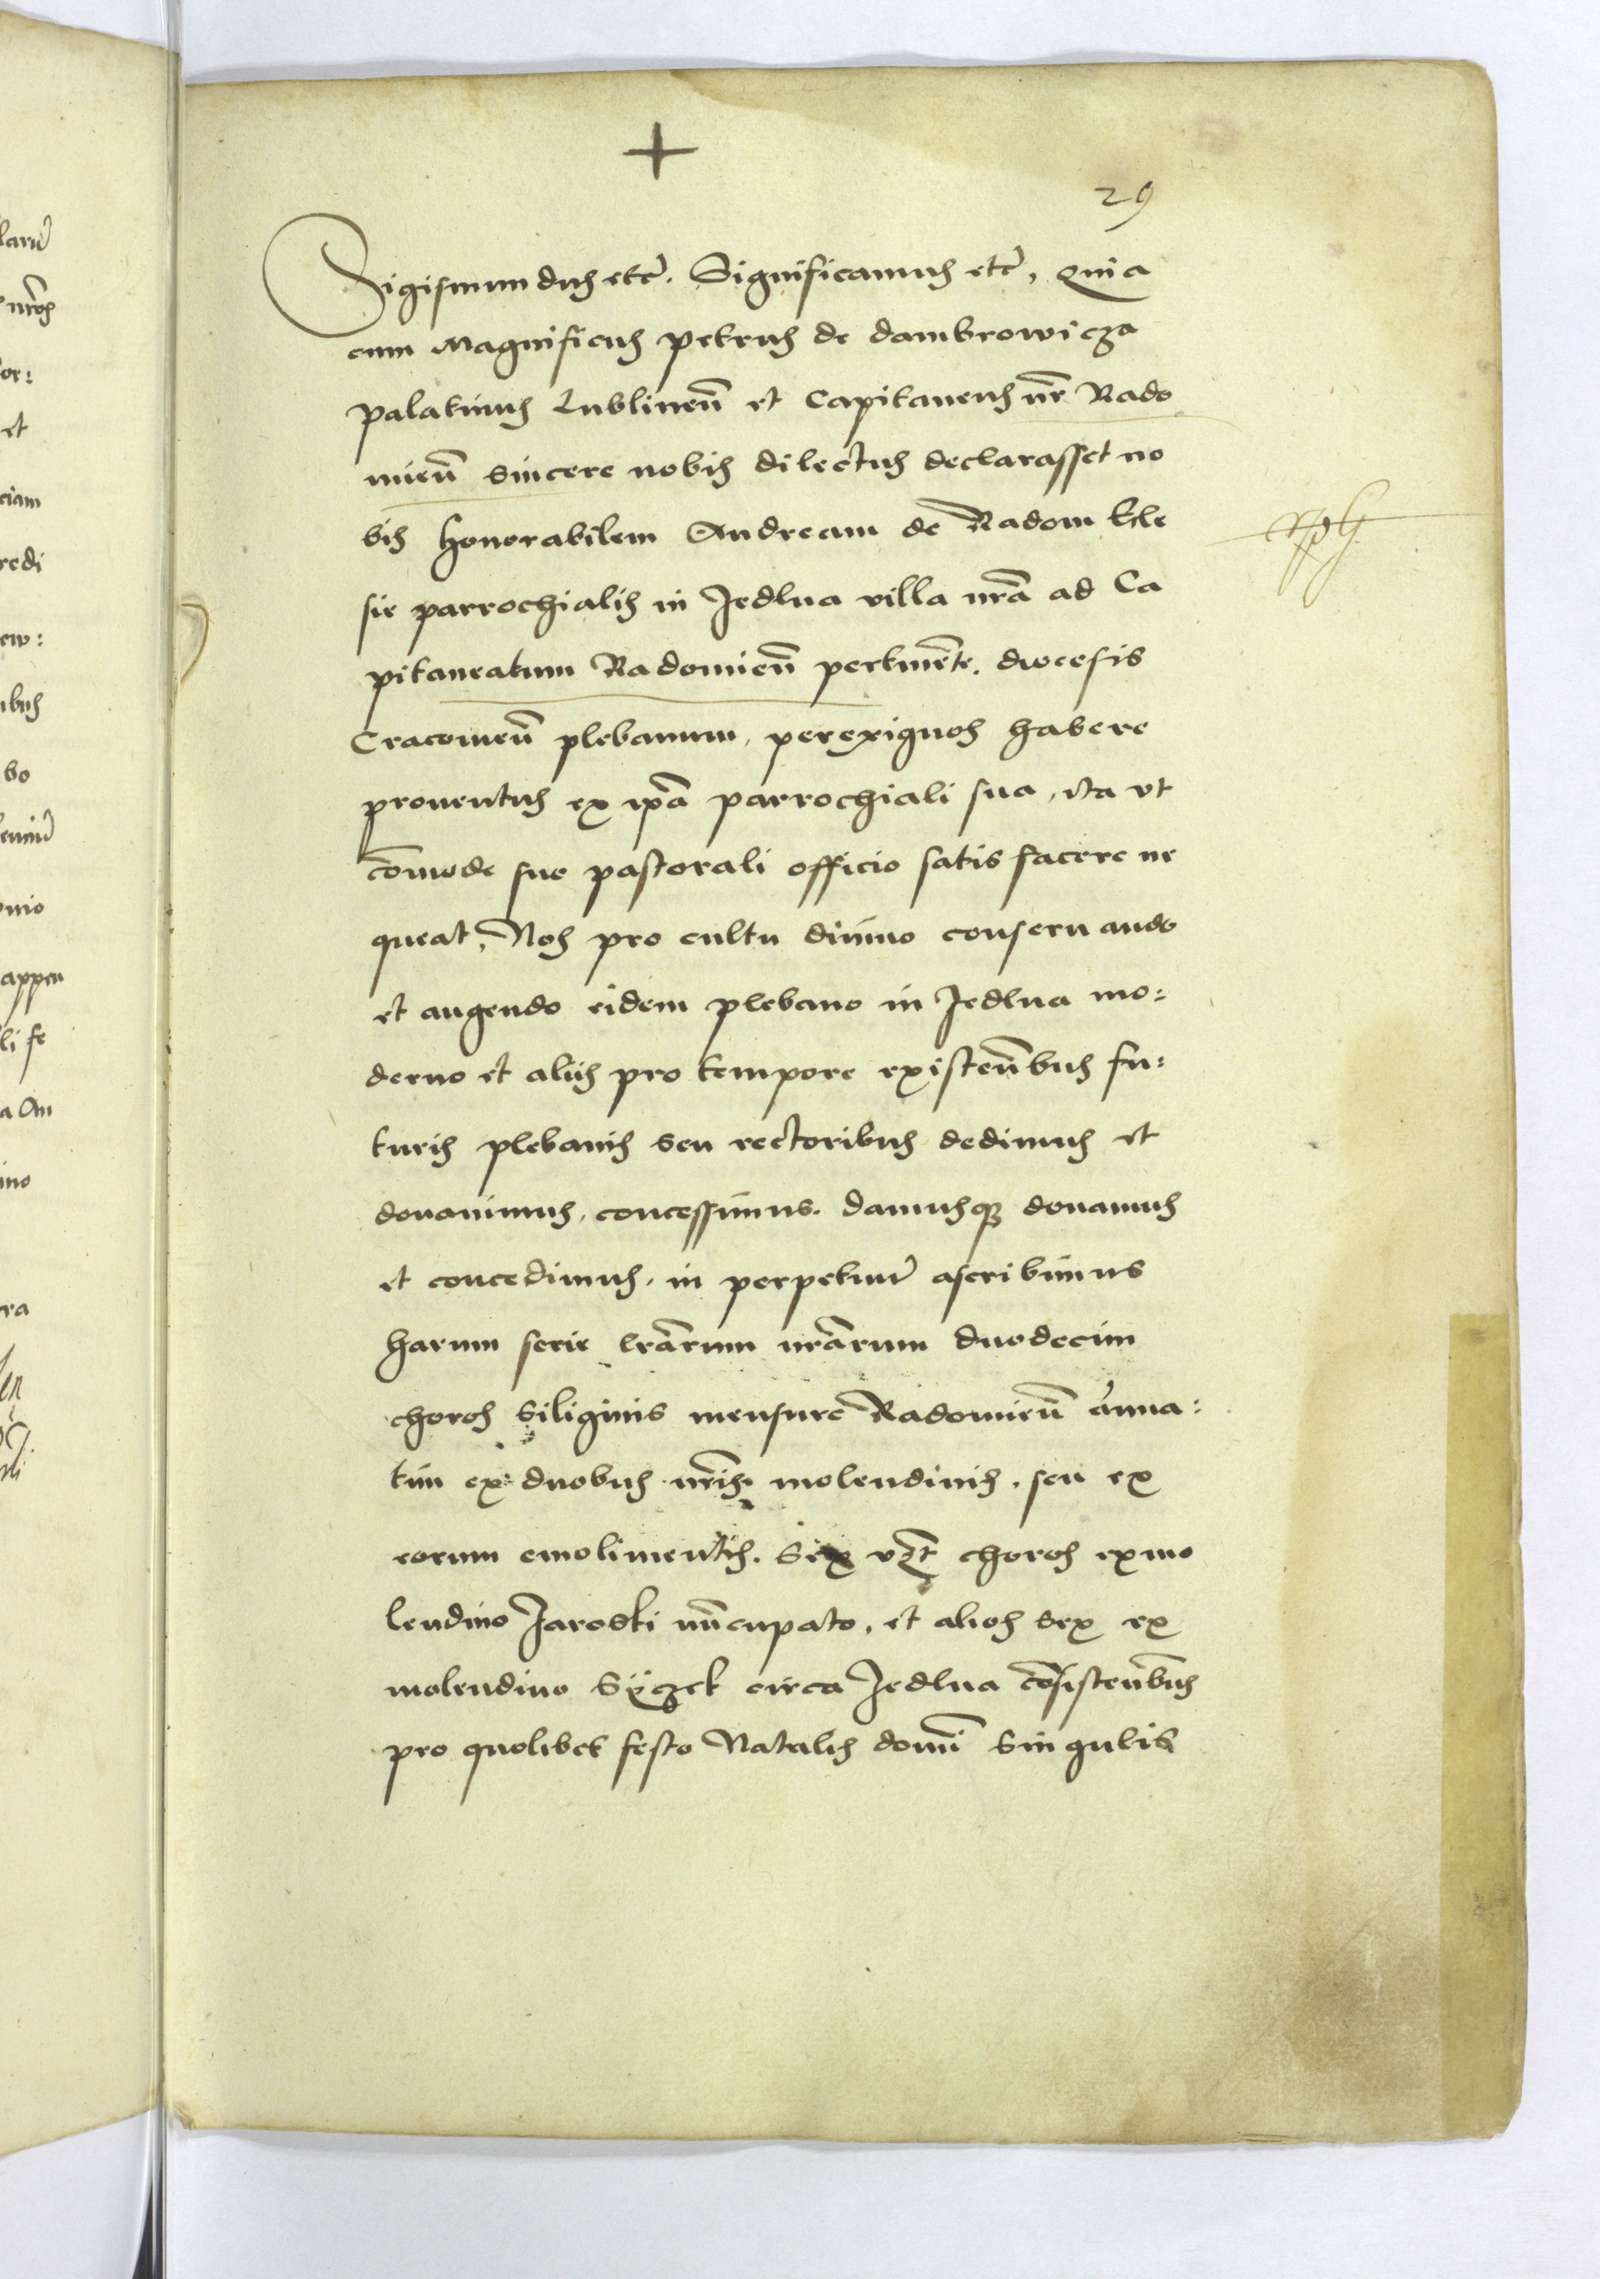 29
Sigismundus etc̃. Significamus etc̃, Quia
cum Magnificus petrus de dambrowicza
palatinus Lublineñ et Capitaneus nr̃e Rado
mieñ sincere nobis dilectus declarasset no
bis honorabilem Andream de Radom Ecle
sie parrochialis in Jedlna villa nr̃a ad Ca
pitaneatum Radomieñ pertinẽte. diocesis
Cracouieñ plebanum, perexiguos habere
prouentus ex ip̃a parrochiali sua, ita vt
com̃ode sue pastorali officio satis facere ne
queat, Nos pro cultu diuino conseruando
et augendo eidem plebano in Jedlna mo:
derno et alijs pro tempore existeñbus fu:
turis plebanis seu rectoribus dedimus et
donauimus, concessimus. damusq; donamus
et concedimus, in perpetuũ ascribimus
harum serie lrãrum nrãrum duodecim
choros siliginis mensure Radomieñ anna:
tim ex duobus nr̃is molendinis, seu ex
eorum emolimentis. Sex vzt̃ choros ex mo
lendino Jaroski nũcupato, et alios sex ex
molendino Syczek circa Jedlna cõsisteñbus
pro quolibet festo Natalis domĩ singulis